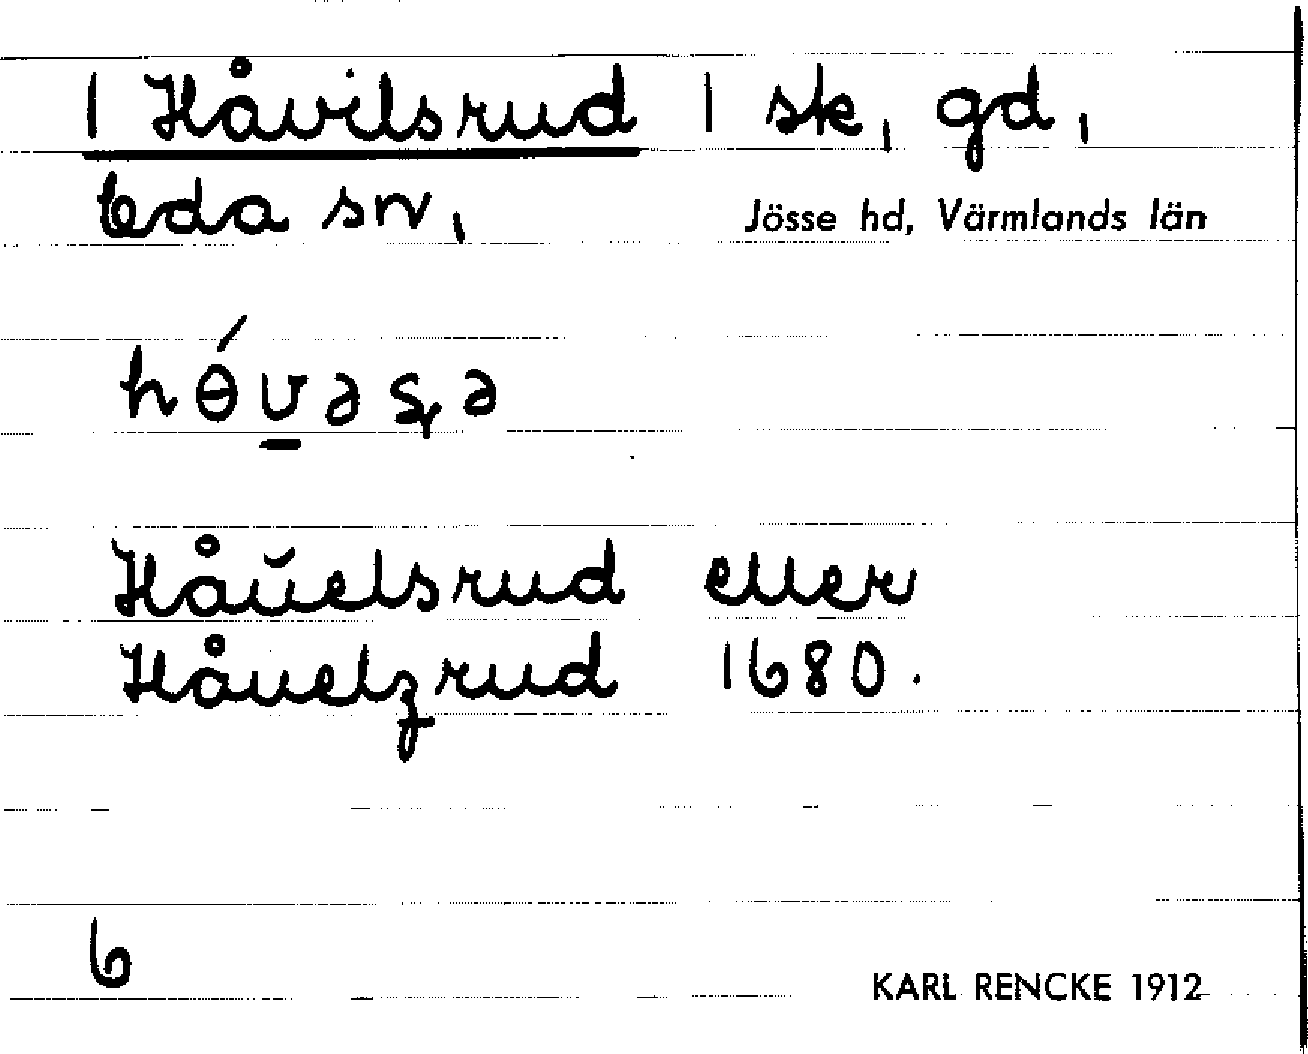 | Håvilsrud | sk, gd,
Eda sn, Jösse hd, Värmlands län
hɵ́v̲əʂə
Håŭelsrud eller
Håuelzrud 1680.
6
KARL RENCKE 1912